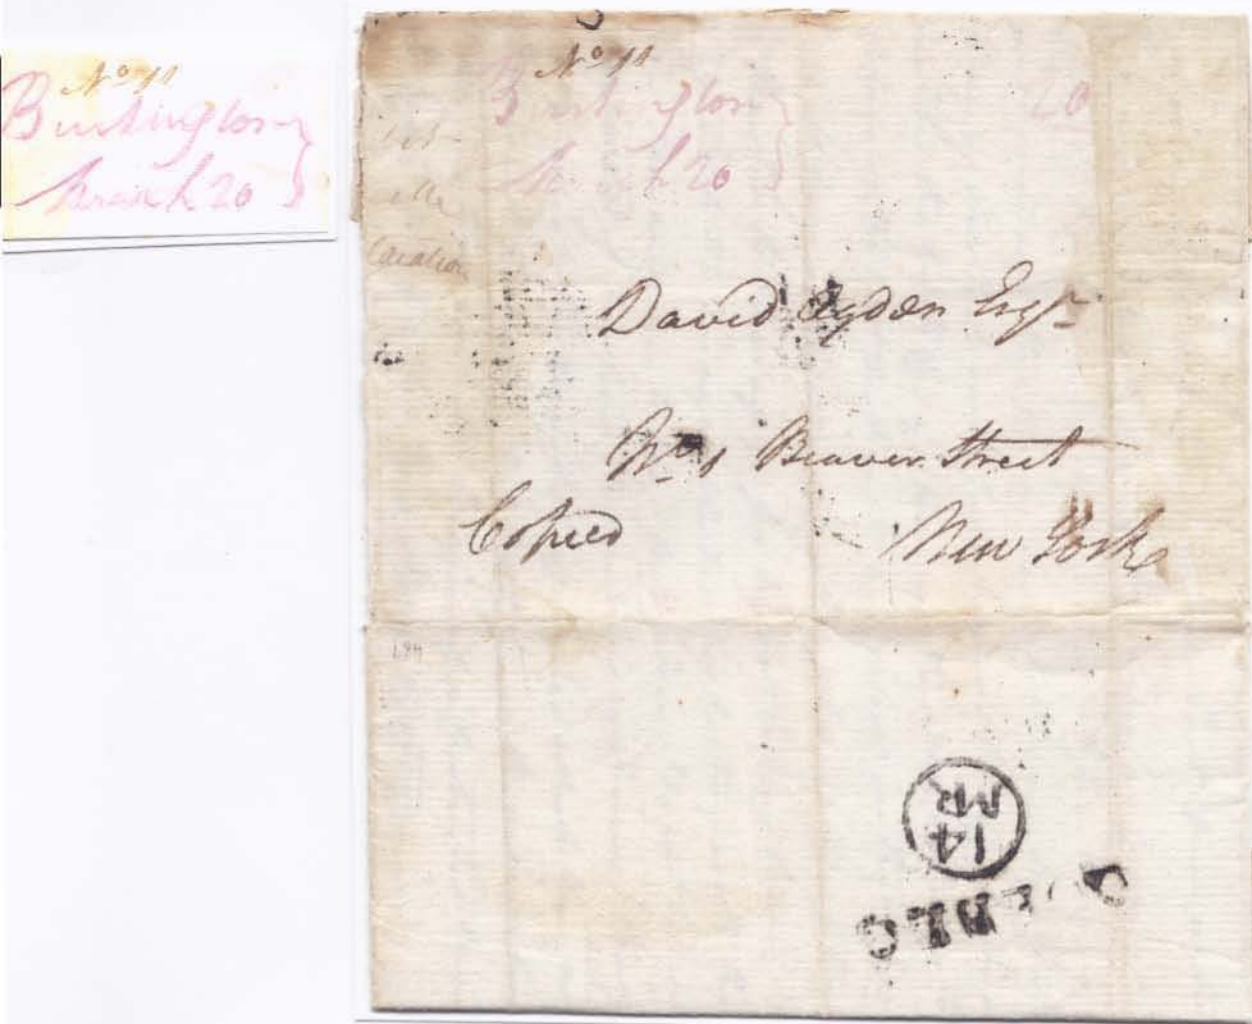 No 11
Burlington
March 20
No 11
Burlington
20
March 20
David Ogden Esqr
No 1 Beaver Street
Copied
New York
14
MR
QUEBEC